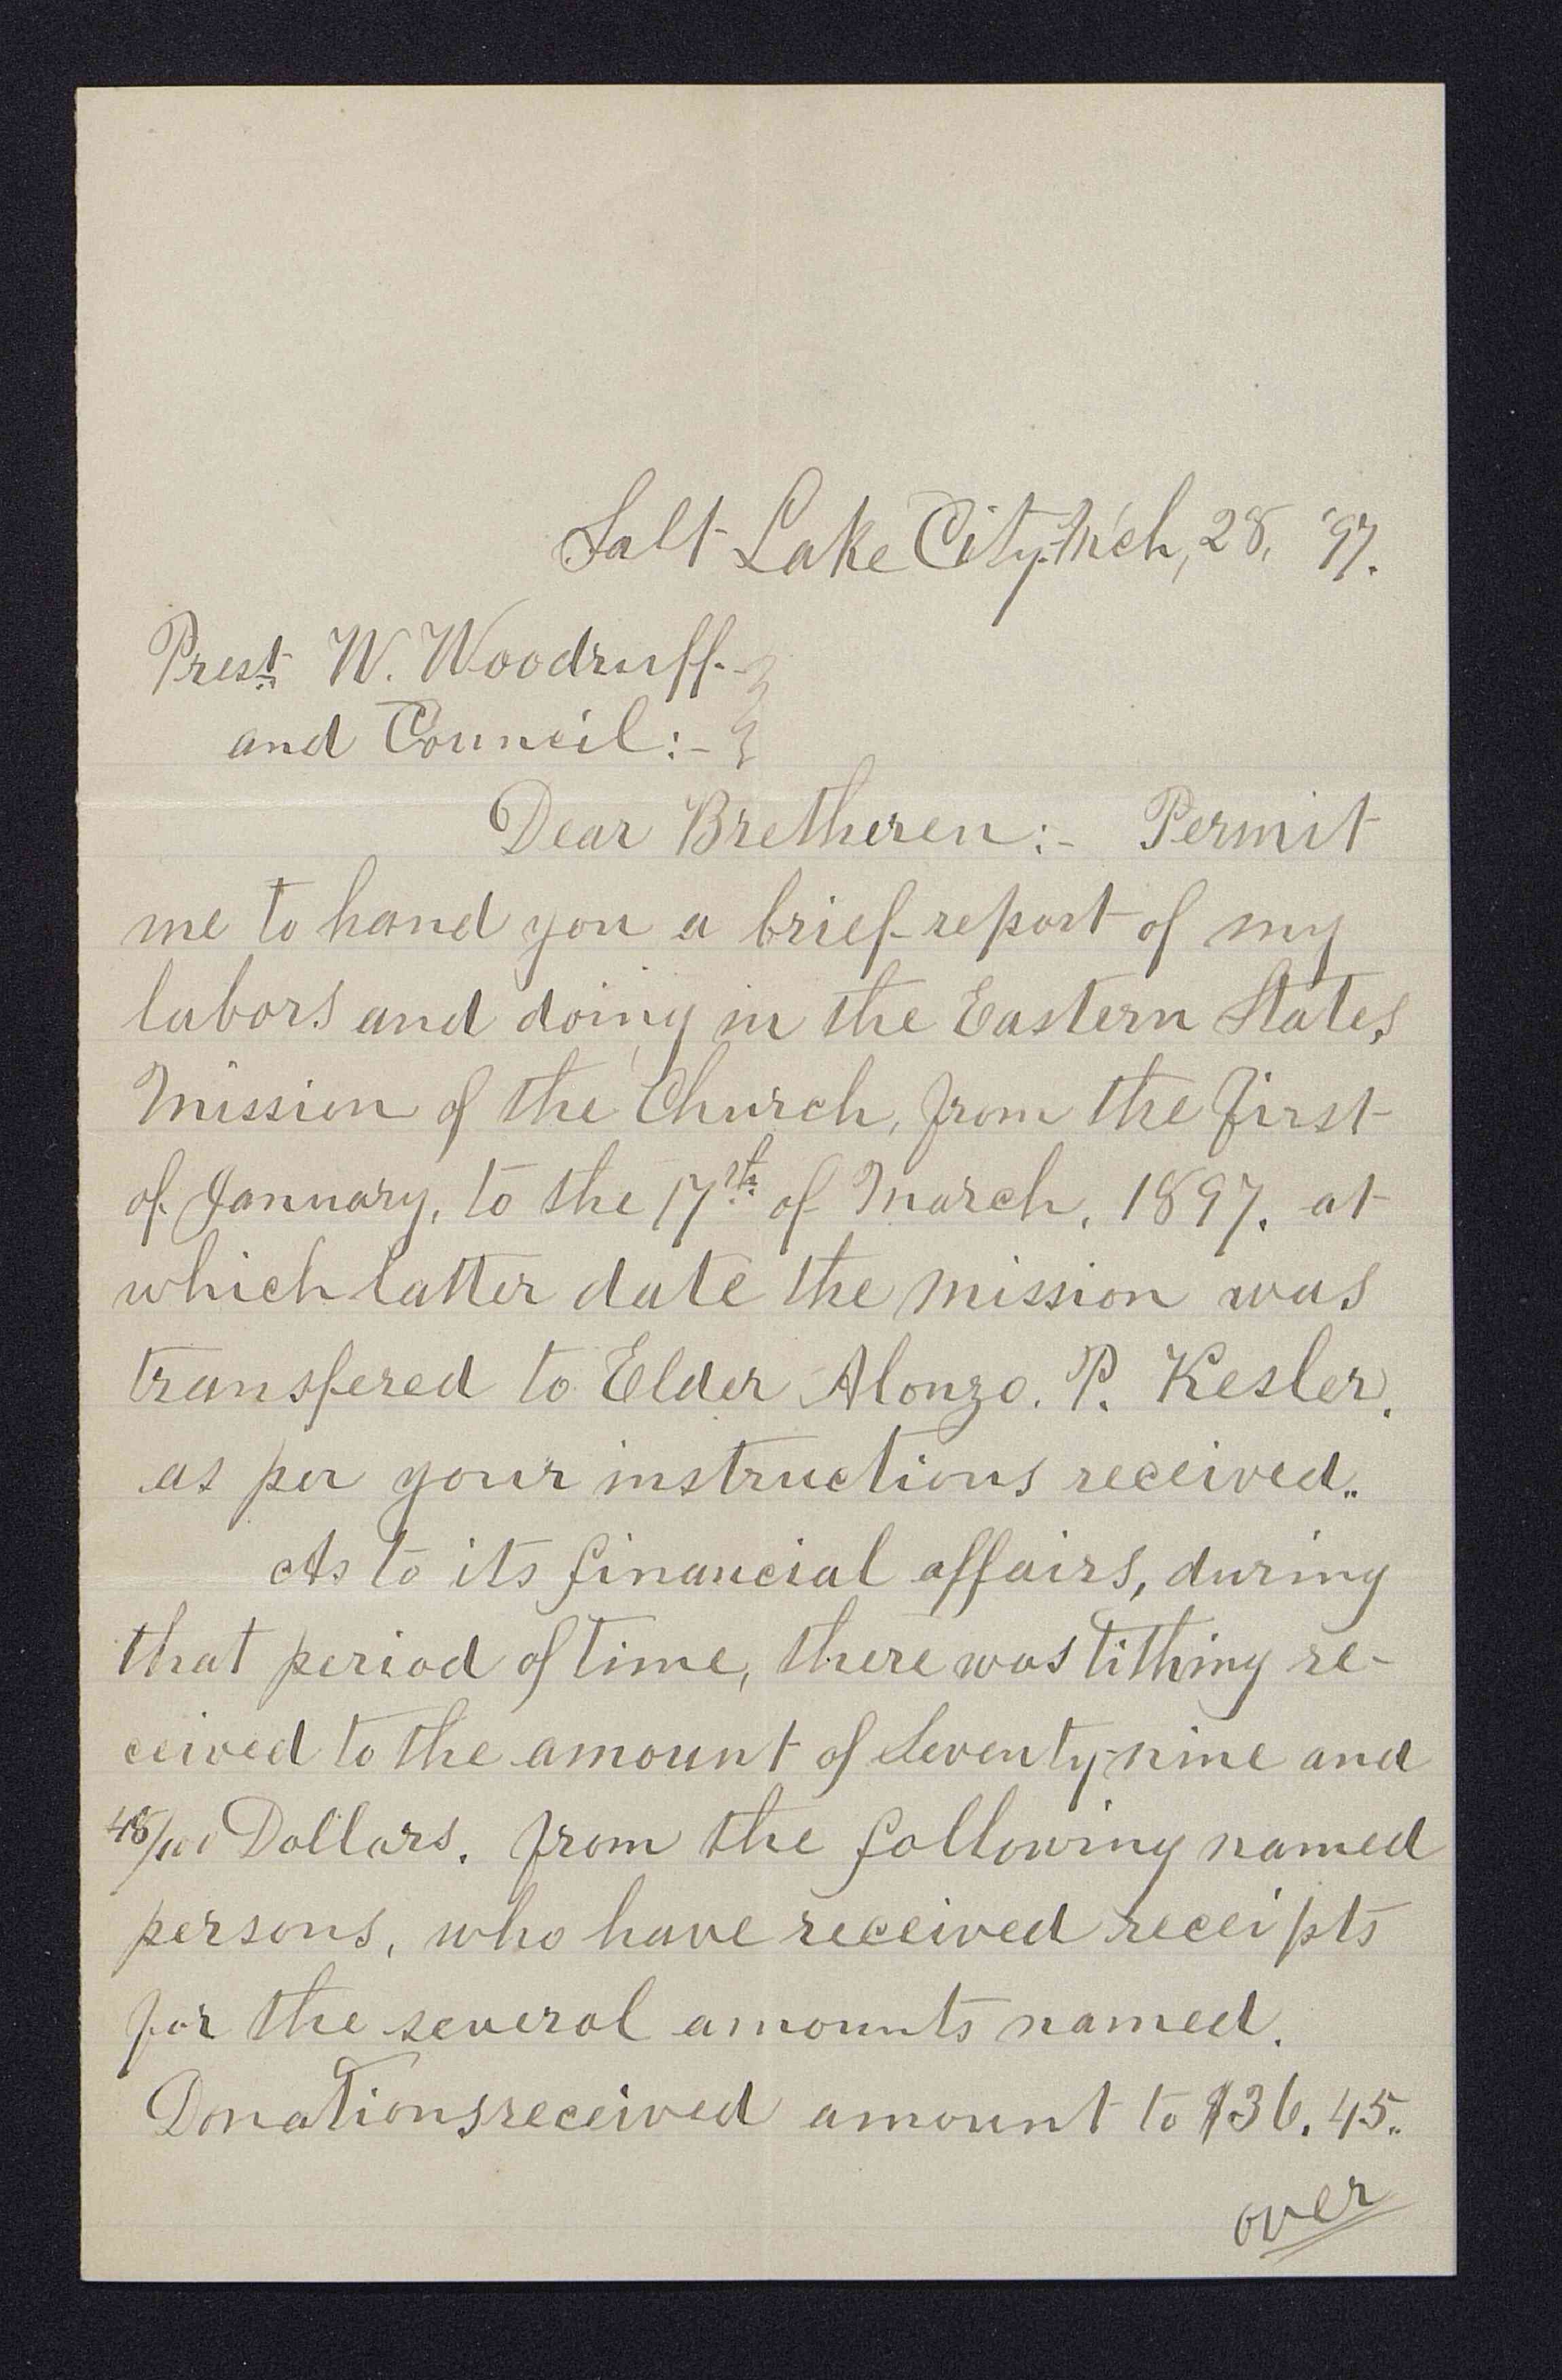 Salt Lake City. M'ch, 28, '97.
Prest. W. Woodruff.
and Council:-
Dear Bretheren:- Permit
me to hand you a brief report of my
labors and doing in the Eastern States
Mission of the Church, from the first
of January, to the 17th of March, 1897. at
which latter date the mission was
transfered to Elder Alonzo. P. Kesler.
as per your instructions received..
As to its financial affairs, during
that period of time, there was tithing re-
ceived to the amount of Seventy-nine and
48/100 Dollars. from the following named
persons, who have received receipts
for the several amounts named.
Donations received amount to $36.45..
over